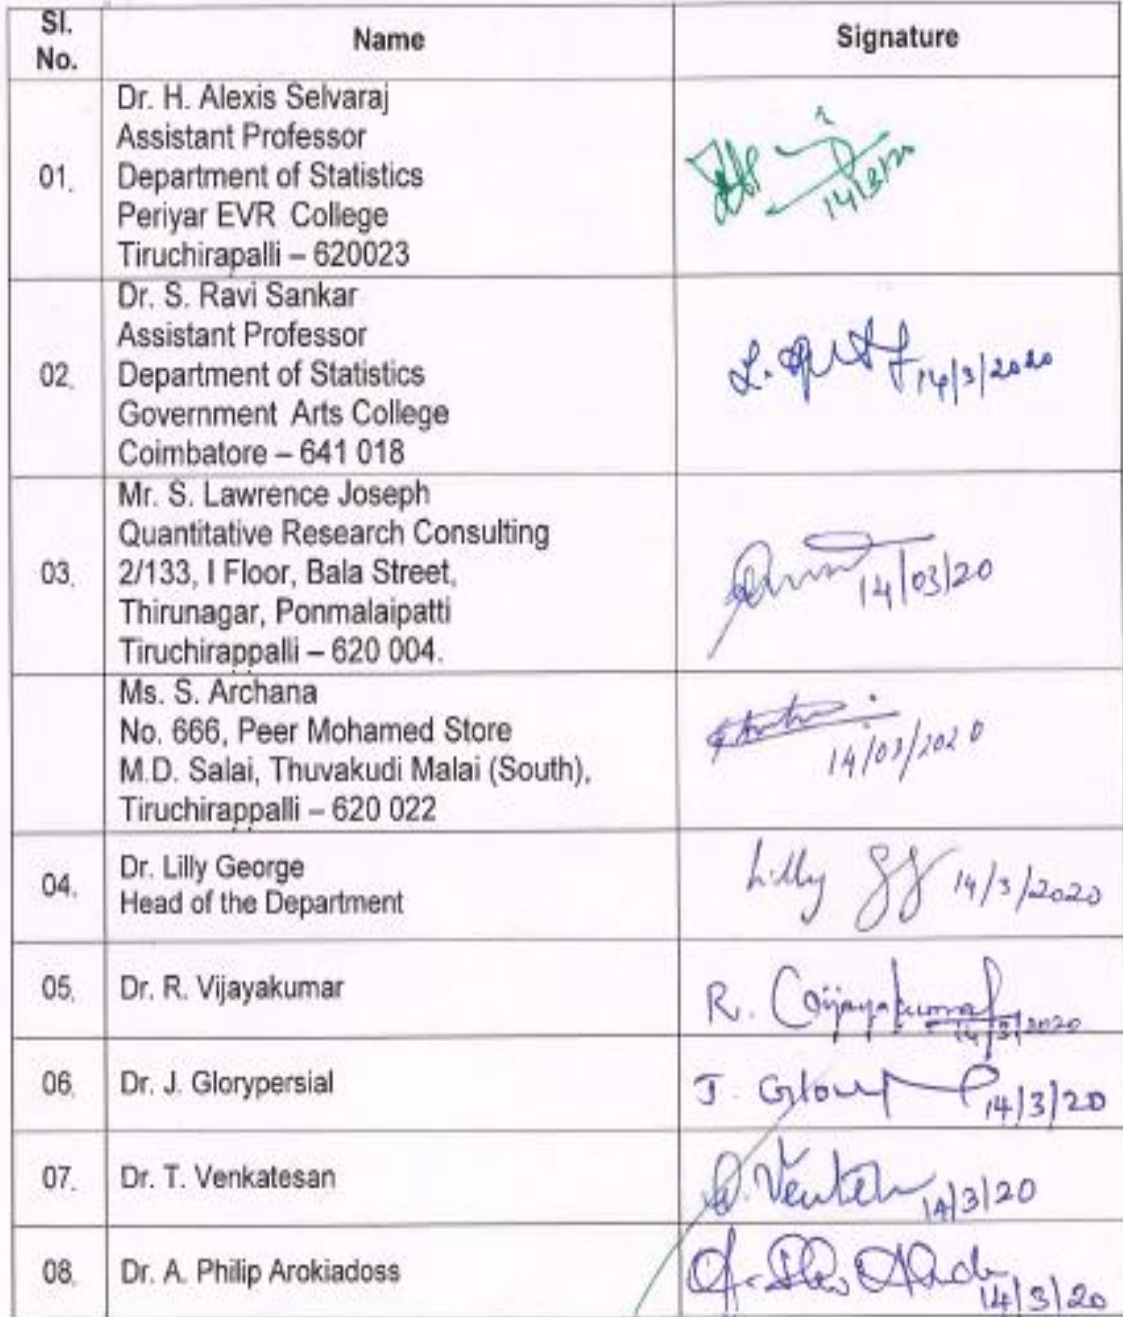 Sl. No. Name Signature
01. Dr. H. Alexis Selvaraj
Assistant Professor
Department of Statistics
Periyar EVR College
Tiruchirapalli – 620023
14/3/20
02. Dr. S. Ravi Sankar
Assistant Professor
Department of Statistics
Government Arts College
Coimbatore – 641 018
14/3/2020
03. Mr. S. Lawrence Joseph
Quantitative Research Consulting
2/133, I Floor, Bala Street,
Thirunagar, Ponmalaipatti
Tiruchirappalli – 620 004.
14/03/20
Ms. S. Archana
No. 666, Peer Mohamed Store
M.D. Salai, Thuvakudi Malai (South),
Tiruchirappalli – 620 022
14/03/2020
04. Dr. Lilly George
Head of the Department
Lilly 14/3/2020
05. Dr. R. Vijayakumar
R. Vijayakumar
14/3/2020
06. Dr. J. Glorypersial
J. Glory 14/3/20
07. Dr. T. Venkatesan
14/3/20
08. Dr. A. Philip Arokiadoss
14/3/20